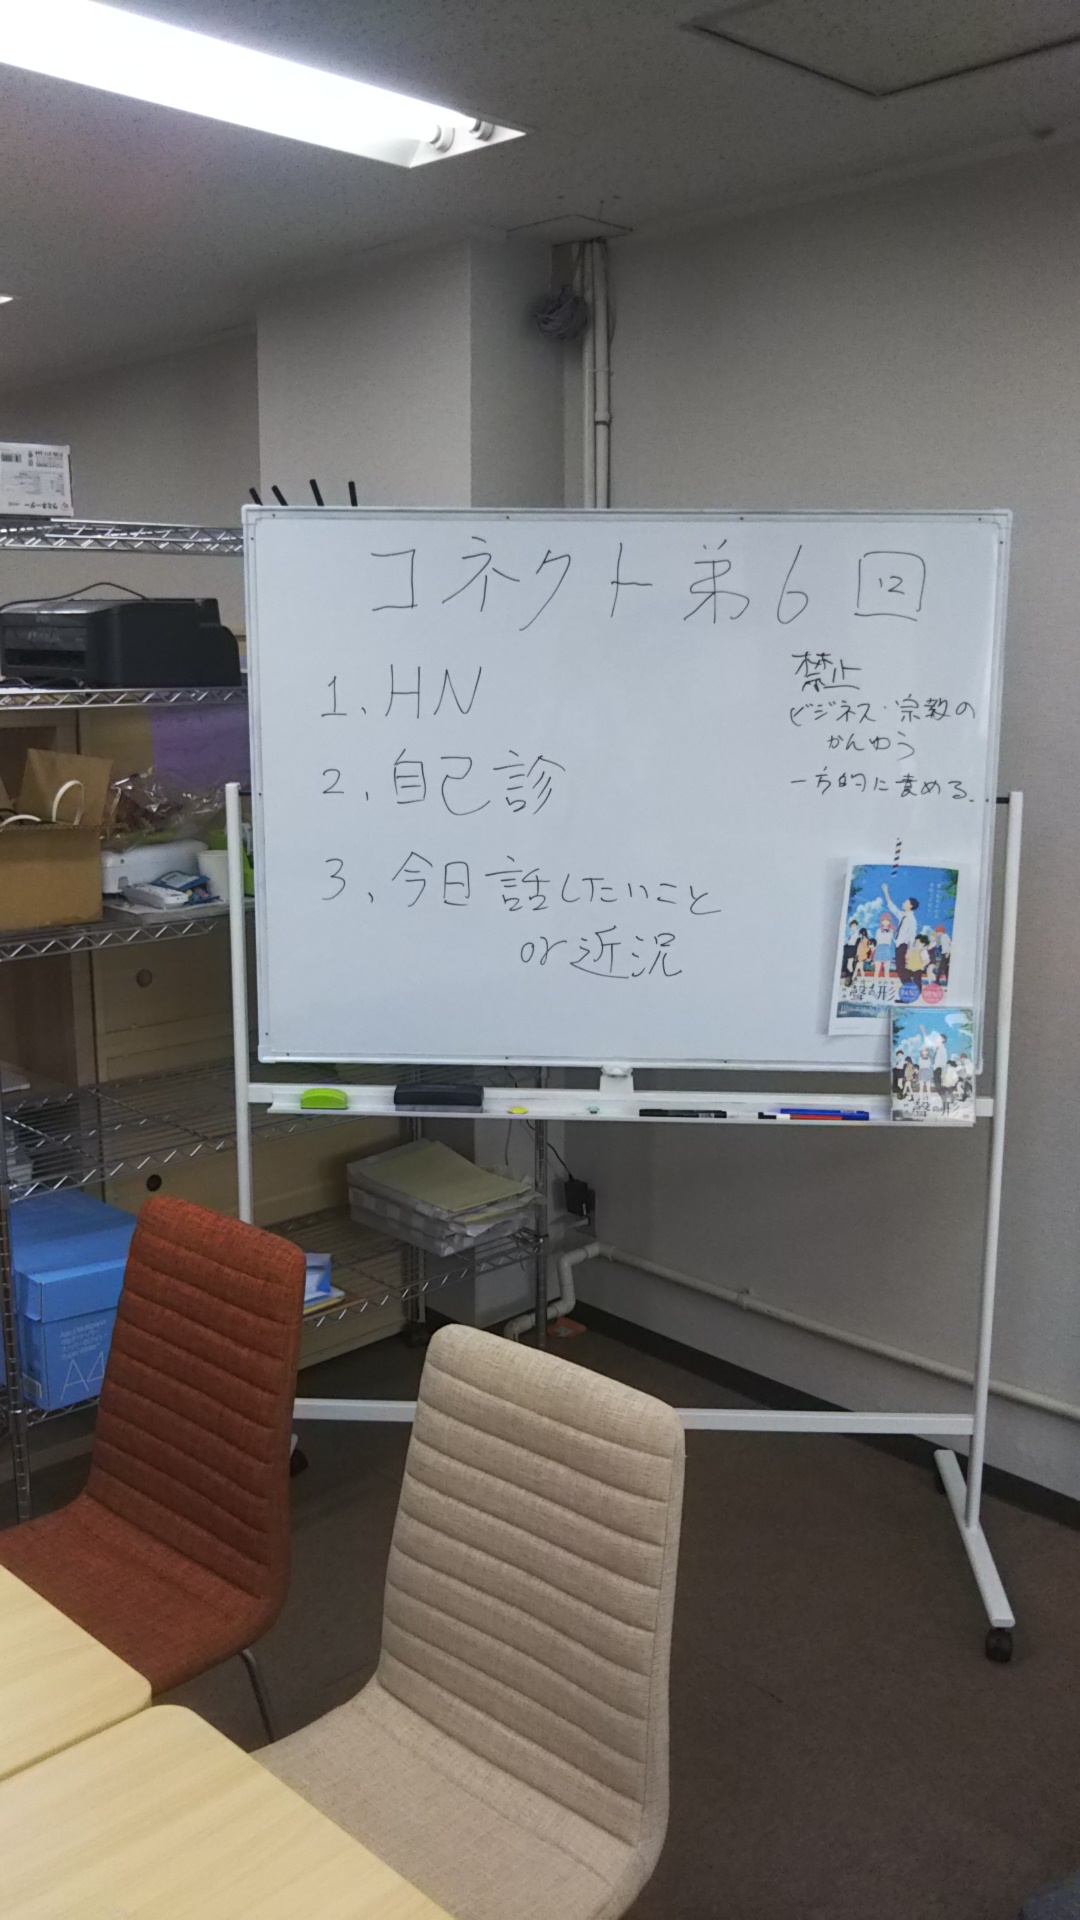 コネクト 第6回
1、HN
2、自己診
3、今日話したいこと
or近況
禁止
ビジネス・宗教の
かんゆう
一方的に責める。
聲の形
聲の形
A4